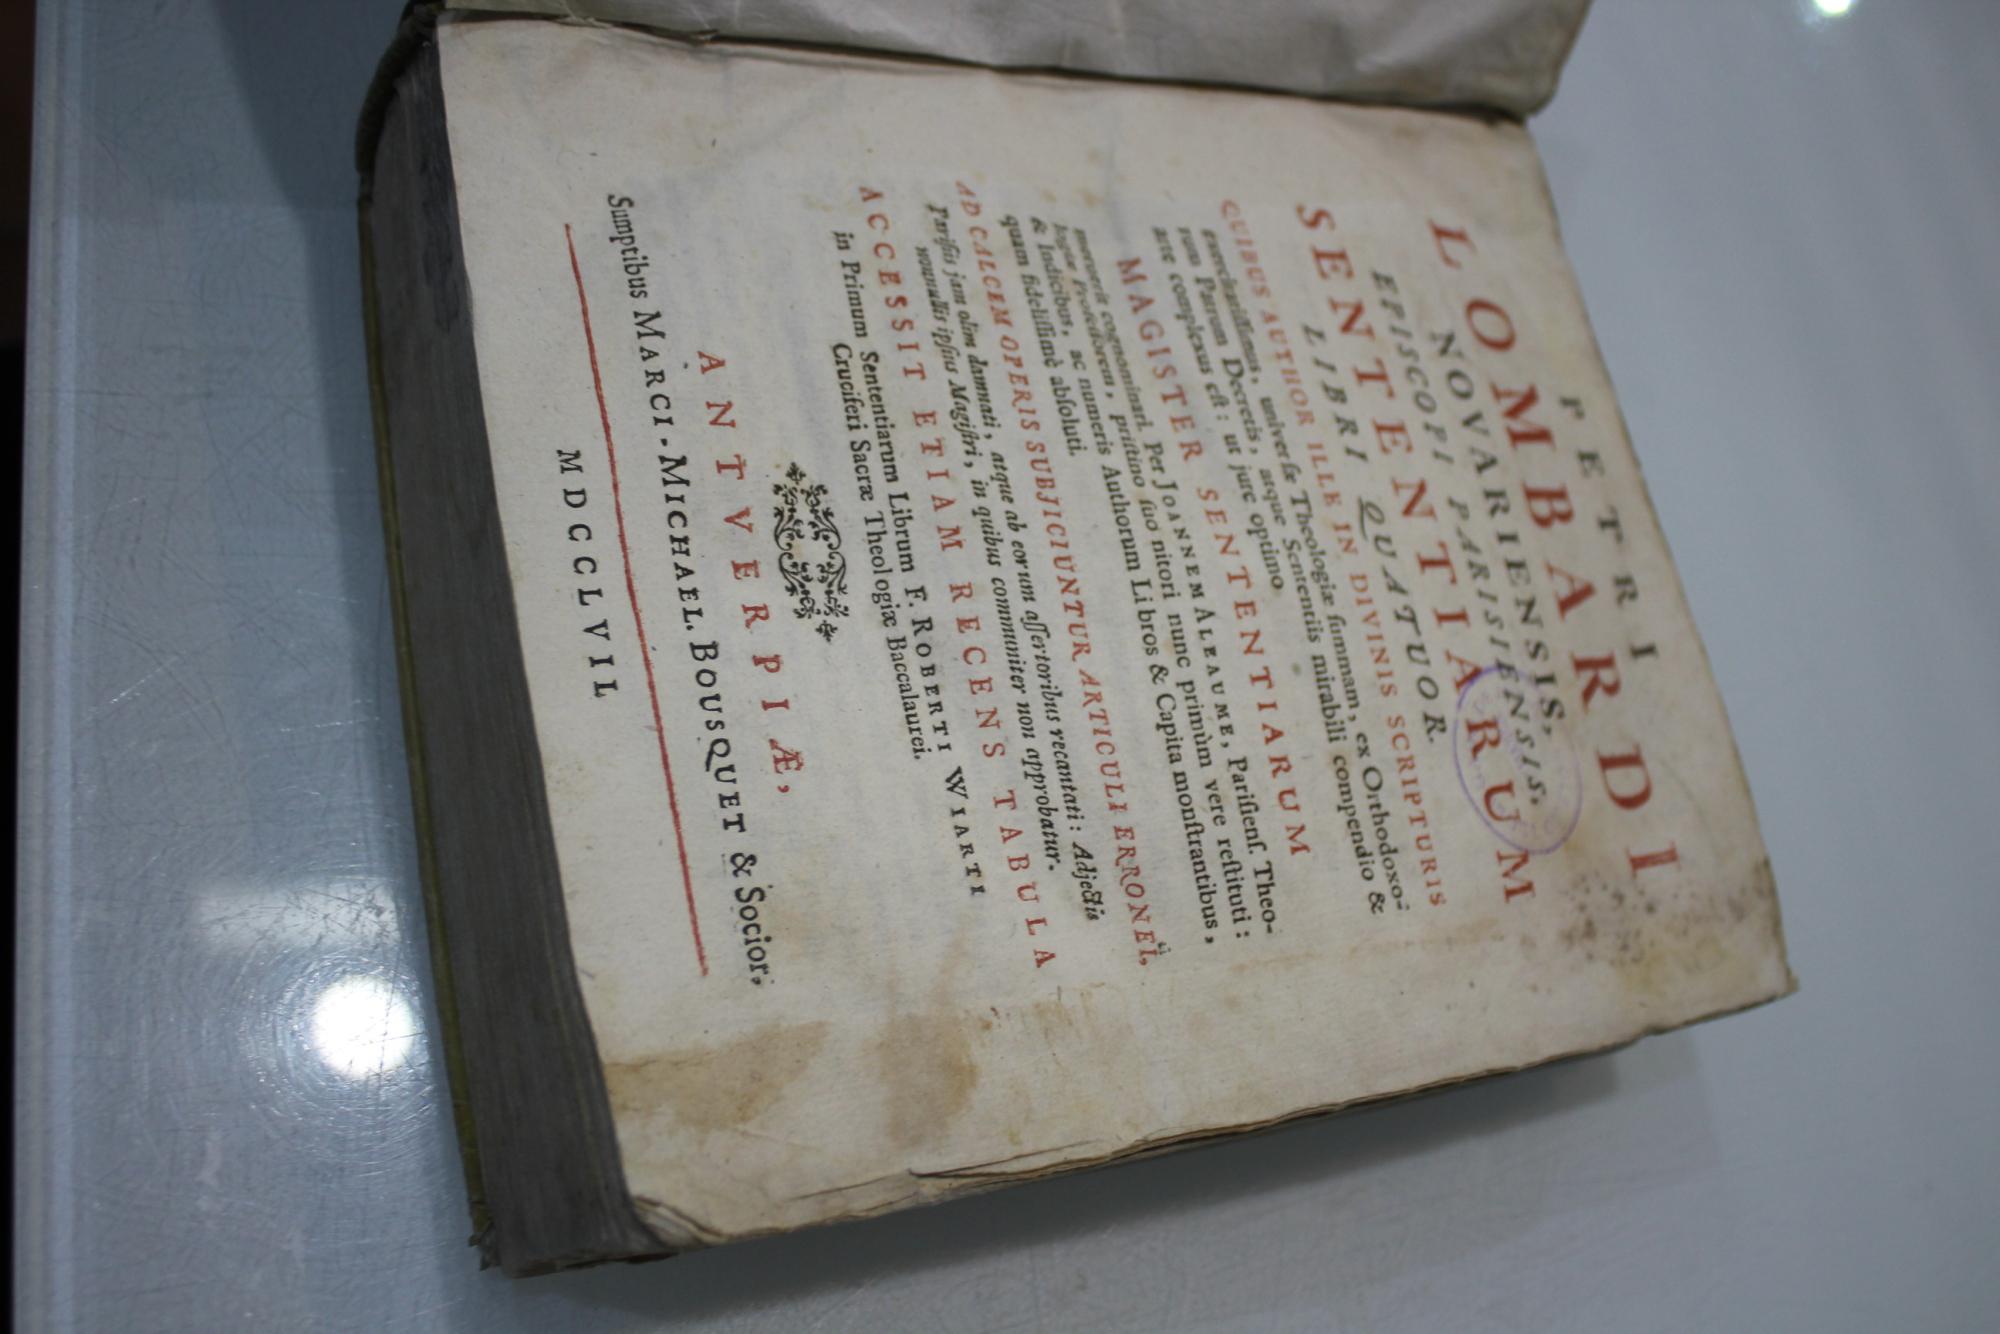 PETRI
LOMBARDI
NOVARIENSIS,
EPISCOPI PARISIENSIS.
SENTENTIARUM
LIBRI QUATUOR.
QUIBUS AUTHOR ILLE IN DIVINIS SCRIPTURIS
exercitatissimus, universæ Theologiæ summam, ex Orthodoxo-
rum Patrum Decretis, atque Sententiis mirabili compendio &
arte complexus est: ut jure optimo
MAGISTER SENTENTIARUM
meruerit cognominari. Per JOANNEM ALEAUME, Parisiens. Theo-
logiæ Professorem, pristino suo nitori nunc primùm vere restituti:
& Indicibus, ac numeris Authorum Libros & Capita monstrantibus,
quam fidelissimè absoluti.
AD CALCEM OPERIS SUBJICIUNTUR ARTICULI ERRONEI,
Parisiis jam olim damnati, atque ab eorum assertoribus recantati: Adjectis
nonnullis ipsius Magistri, in quibus communiter non approbatur.
ACCESSIT ETIAM RECENS TABULA
in Primum Sententiarum Librum F. ROBERTI WIARTI
Cruciferi Sacræ Theologiæ Baccalaurei.
ANTVERPIÆ,
Sumptibus MARCI-MICHAEL. BOUSQUET & Socior,
MDCCLVII.